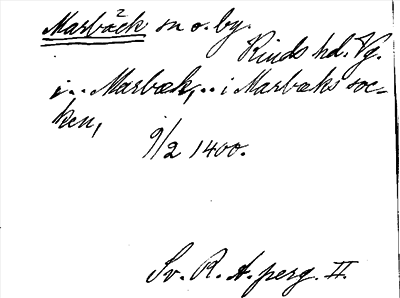 Marbäck sn o. by.
Kinds hd. Vg.
i.. Marbæk,.. i Marbæks soc-
ken,
9/2 1400.
Sv. R. A. perg. II.